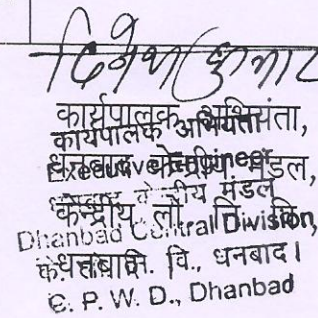 कुमार
कार्यपालक अभियंता,
कार्यपालक अभियंता
धनबाद केन्द्रीय मंडल,
Executive Engineer
केन्द्रीय मंडल
केन्द्रीय लो. नि. वि.,
Dhanbad Central Division,
धनबाद।
के. वि., धनबाद।
C. P. W. D., Dhanbad